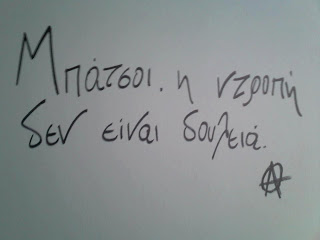 Μπάτσοι. η ντροπή
δεν είναι δουλειά.